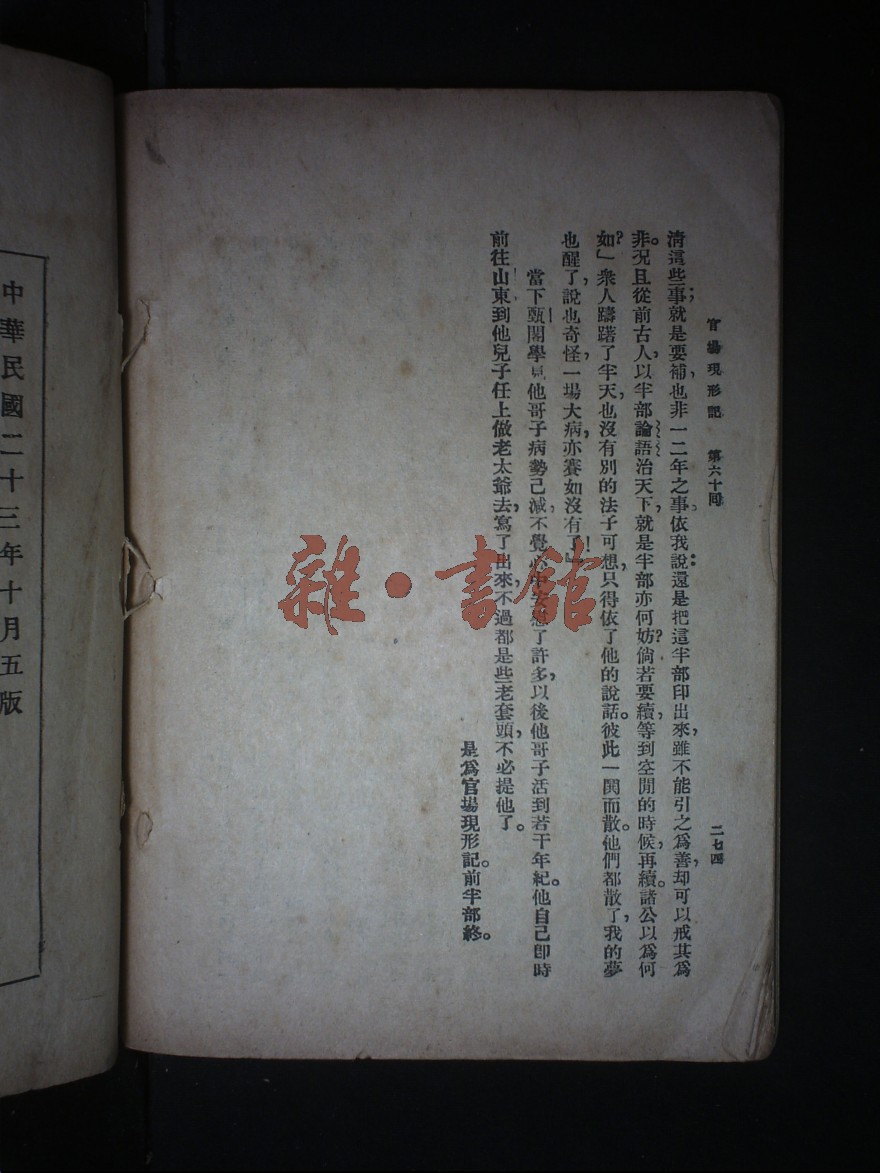 官場現形記　第六十回　二七四
清這些事；就是要補，也非一二年之事。依我說：還是把這半部印出來，雖不能引之爲善，却可以戒其爲
非。况且從前古人，以半部論語治天下，就是半部亦何妨？倘若要續，等到空閒的時候，再續。諸公以爲何
如？」衆人躊躇了半天，也沒有別的法子可想，只得依了他的說話。彼此一鬨而散。他們都散了，我的夢
也醒了，說也奇怪，一場大病，亦賽如沒有了！」
當下甄閣學見他哥子病勢已減，不覺心中安慰了許多，以後他哥子活到若干年紀。他自己即時
前往山東，到他兒子任上做老太爺去，寫了出來，不過都是些老套頭，不必提他了。
是爲官場現形記。前半部終。
中華民國二十三年十月五版
雜·書館